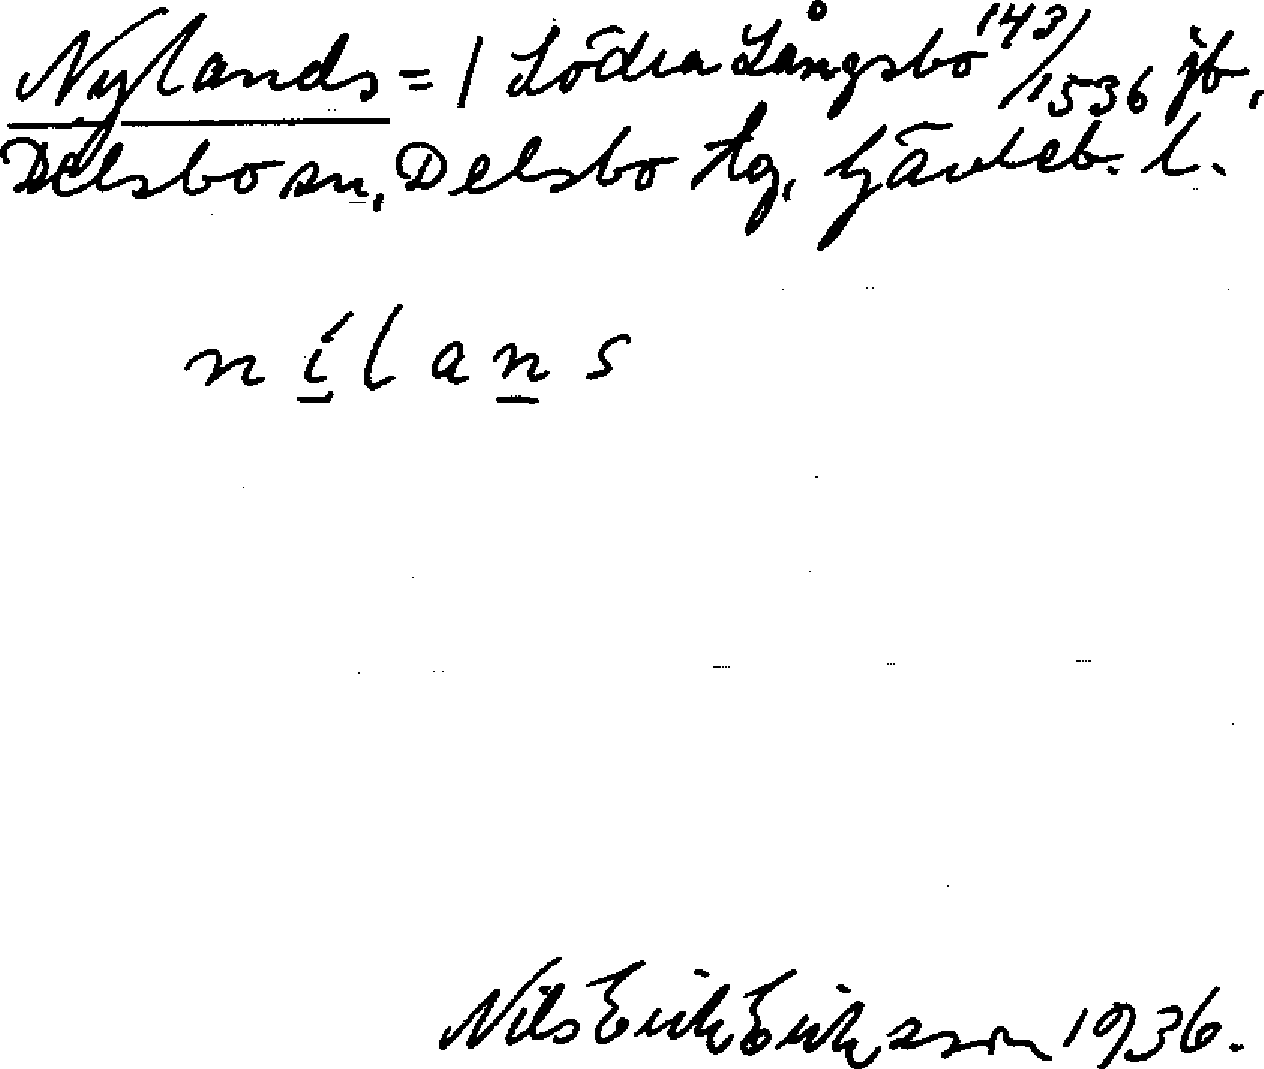 Nylands = 1 Södra Långsbo 143/1536 jb,
Delsbo sn, Delsbo tg, Gävleb. l.
n í̱ l a ṉ s
Nils Erik Eriksson 1936.